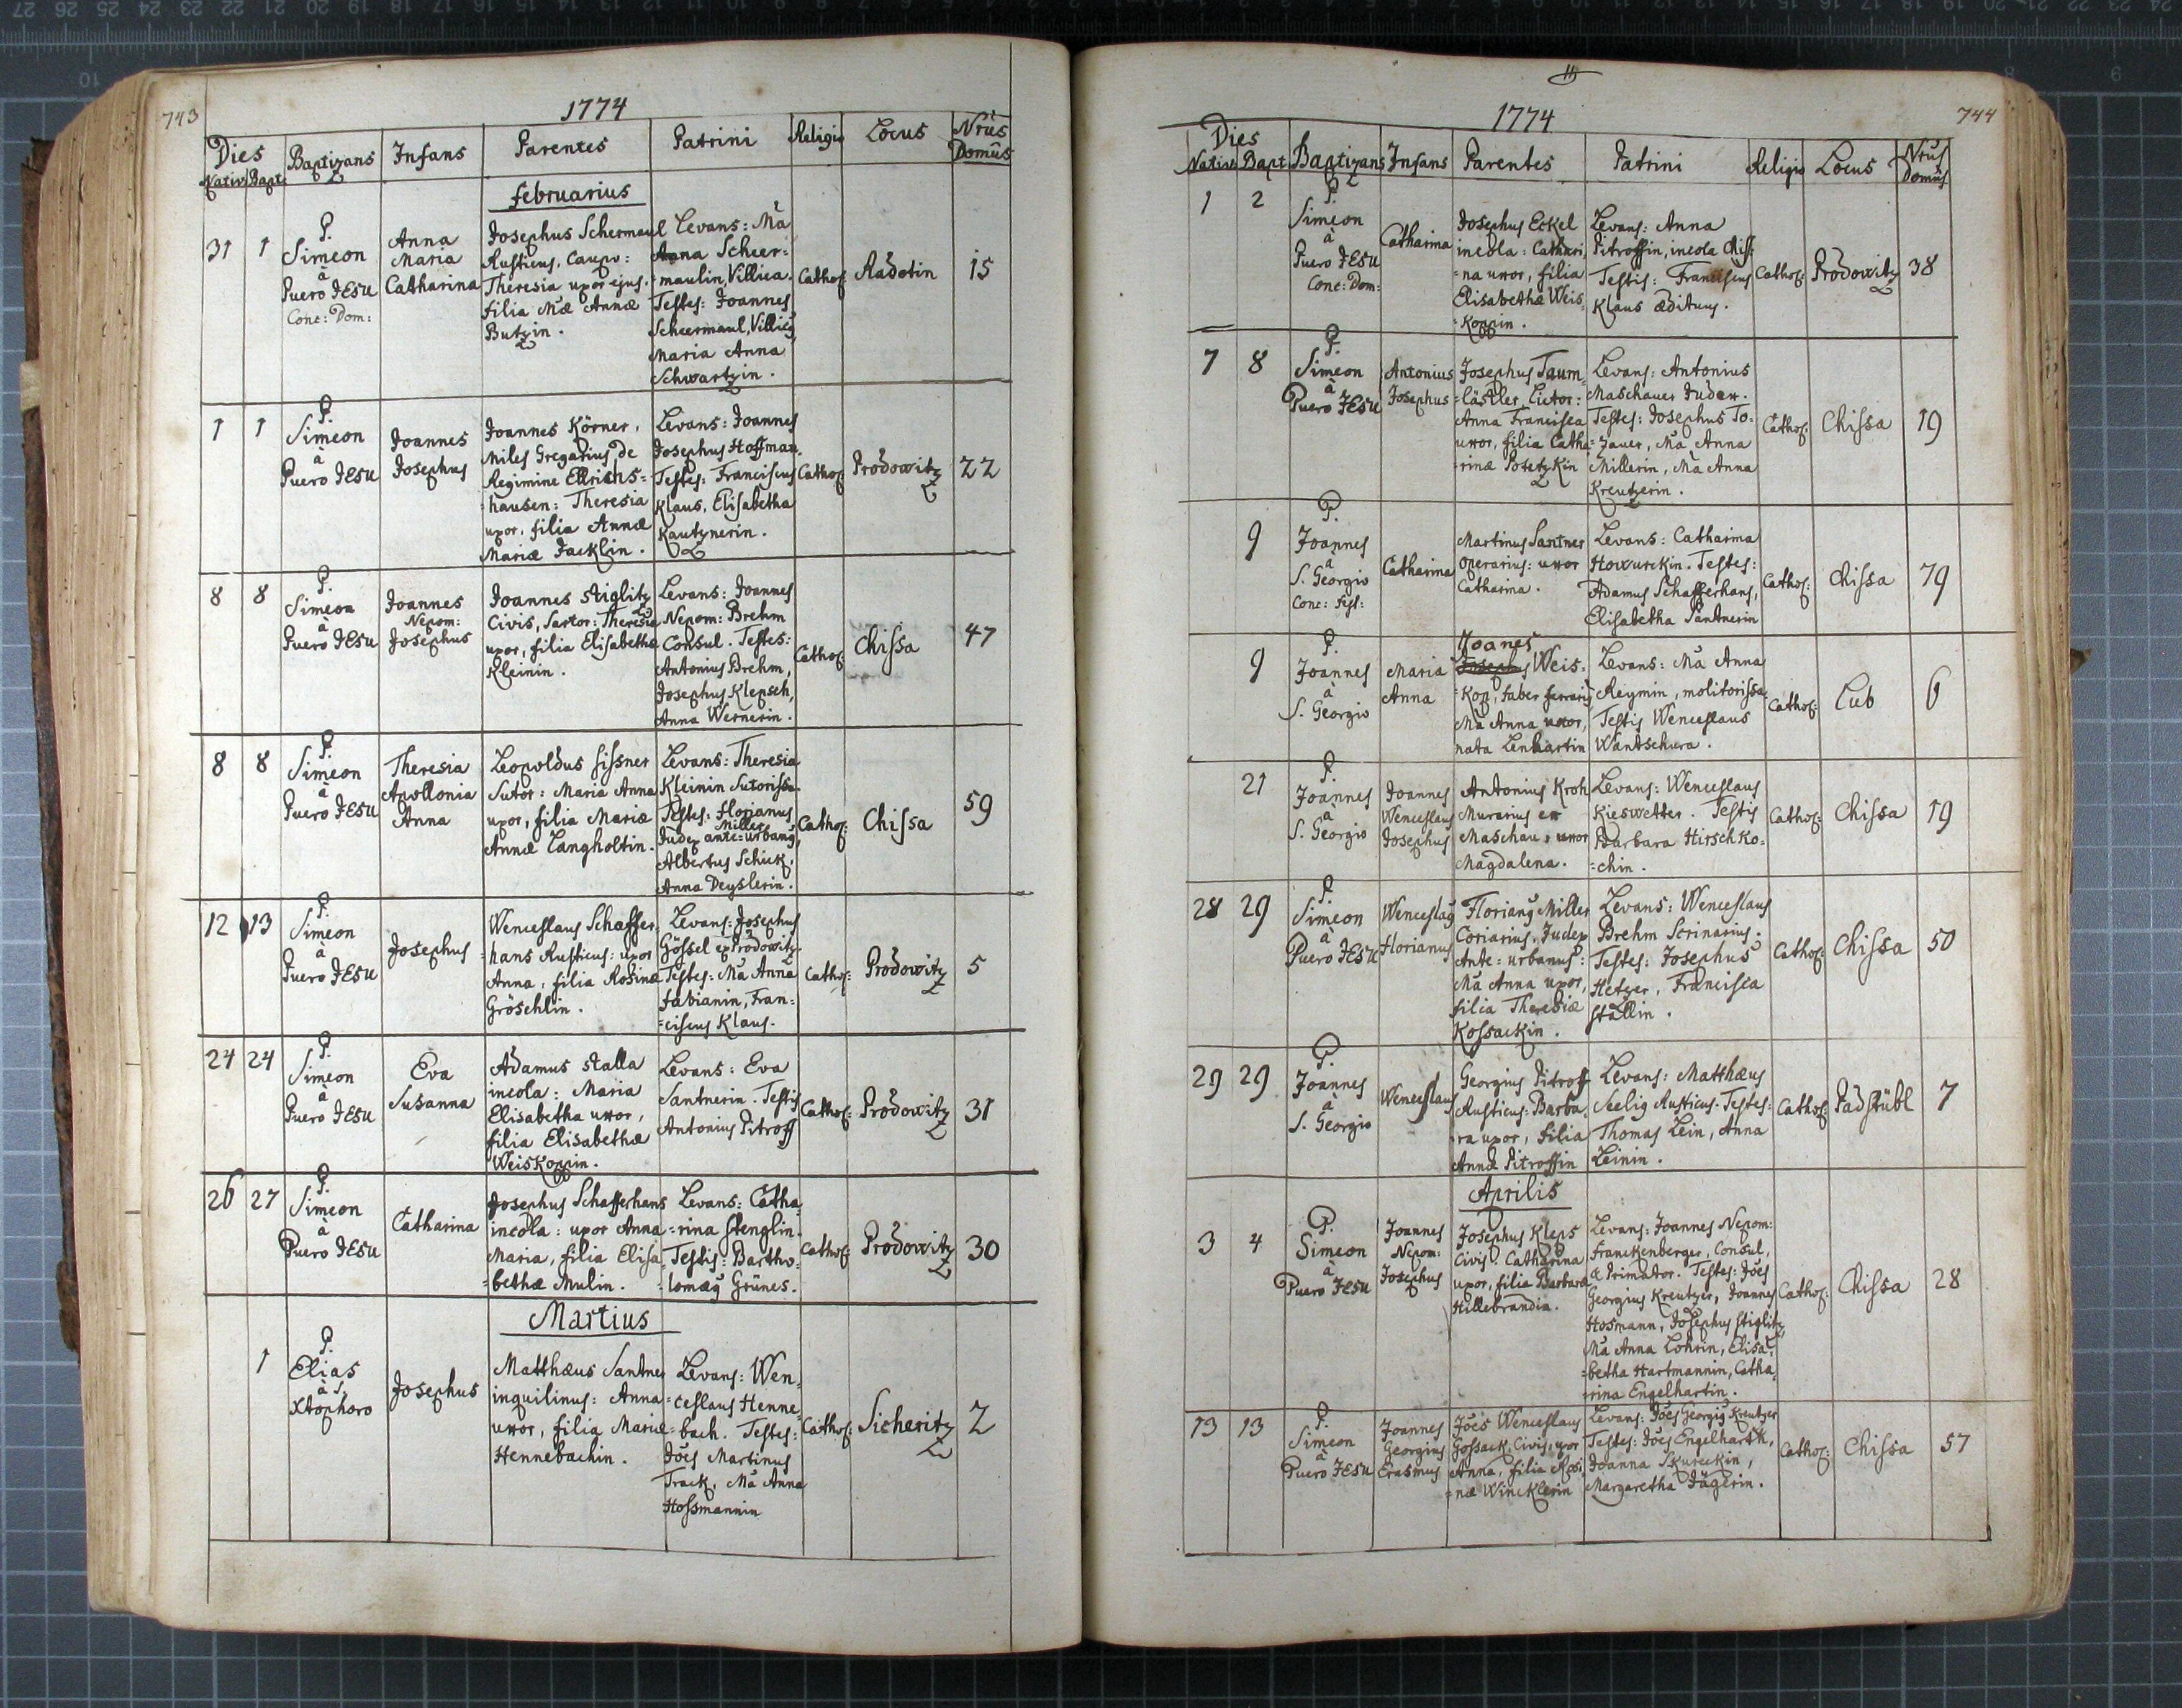 743
1774
Dies
Nativ: Bapt:
Baptizans
Infans
Parentes
Patrini
Religio
Locus
Nrus
Domus
Februarius
31
1
P.
Simeon
à
Puero JEsu
Conc: Dom:
Anna
Maria
Catharina
Josephus Schermaul
Rusticus, Caupo:
Theresia uxor ejus,
filia Mæ Annæ
Butzin.
Levans: Mã
Anna Scheer-
=maulin, Villica.
Testes: Joannes
Scheermaul, Villicq
Maria Anna
Schwartzin.
Cathol:
Radotin
15
1
1
P.
Simeon
à
Puero JEsu
Joannes
Josephus
Joannes Körner,
Miles Gregarius de
Regimine Ellrichs-
=hausen: Theresia
uxor, filia Annæ
Mariæ Jacklin.
Levans: Joannes
Josephus Hoffman.
Testes: Franciscus
Klaus, Elisabetha
Kautznerin.
Cathol:
Prödowitz
22
8
8
P.
Simeon
à
Puero JEsu
Joannes
Nepom:
Josephus
Joannes Stiglitz
Civis, Sartor: Theresia
uxor, filia Elisabethæ
Kleinin.
Levans: Joannes
Nepom: Brehm
Consul. Testes:
Antonius Brehm,
Josephus Klepsch,
Anna Wernerin.
Cathol:
Chissa
47
8
8
P.
Simeon
à
Puero JEsu
Theresia
Apollonia
Anna
Leopoldus Fissner
Sutor: Maria Anna
uxor, filia Mariæ
Annæ Langholtin.
Levans: Theresia
Kleinin Sutorissa.
Testes: Florianus
Miller
Judex ante-urbang,
Albertus Schick,
Anna Deyslerin.
Cathol:
Chissa
59
12
13
P.
Simeon
à
Puero JEsu
Josephus
Wenceslaus Schaffer,
=hans Rusticus: uxor
Anna, filia Rosinæ
Gröschlin.
Levans: Josephus
Gössel ex Prödowitz.
Testes: Mã Anna
Fabianin, Fran-
=ciscus Klaus.
Cathol:
Prödowitz
5
24
24
P.
Simeon
à
Puero JEsu
Eva
Susanna
Adamus Stalla
incola: Maria
Elisabetha uxor,
filia Elisabethæ
Weiskopin.
Levans: Eva
Santnerin. Testis
Antonius Pitroff
Cathol:
Prödowitz
31
26
27
P.
Simeon
à
Puero JEsu
Catharina
Josephus Schafferhans
incola: uxor Anna
Maria, filia Elisa-
=bethæ Mulin.
Levans: Catha-
=rina Stenglin.
Testis: Bartho-
=lomæq Grünes.
Cathol:
Prödowitz
30
Martius
1
P.
Elias
à S.
Xtophoro
Josephus
Matthæus Santner
inquilinus: Anna
uxor, filia Mariæ
Hennebachin.
Levans: Wen-
=ceslaus Henne-
=bach. Testes:
Jões Martinus
Track, Mã Anna
Hossmannin
Cathol:
Sicheritz
2
744
1774
Dies
Nativ: Bapt:
Baptizans
Infans
Parentes
Patrini
Religio
Locus
Nrus
Domus
1
2
P.
Simeon
à
Puero JEsu
Conc: Dom:
Catharina
Josephus Eckel
incola: Cathari-
=na uxor, filia
Elisabethæ Weis-
=kopin.
Levans: Anna
Pitroffin, incola Chiss:
Testis: Franciscus
Klaus ædituus.
Cathol:
Prödowitz
38
7
8
P.
Simeon
à
Puero JEsu
Antonius
Josephus
Josephus Taum-
=lästler, Lictor:
Anna Francisca
uxor, filia Catha-
=rinæ Posetzkin
Levans: Antonius
Maschauer Judex.
Testes: Josephus To-
=zauer, Mã Anna
Millerin, Mã Anna
Kreutzerin.
Cathol:
Chissa
19
9
P.
Joannes
à
S. Georgio
Conc: Fest:
Catharina
Martinus Santner
operarius: uxor
Catharina.
Levans: Catharina
Howurckin. Testes:
Adamus Schafferhans,
Elisabetha Santnerin
Cathol:
Chissa
79
9
P.
Joannes
à
S. Georgio
Maria
Anna
Joanes
Josephus Weis-
=kop, faber ferrariq
Mã Anna uxor,
nata Lenhartin
Levans: Mã Anna
Reymin, molitorissa
Testis Wenceslaus
Wantschura.
Cathol:
Lub
6
21
P.
Joannes
à
S. Georgio
Joannes
Wenceslaus
Josephus
Antonius Kroh
Murarius ex
Maschau, uxor
Magdalena.
Levans: Wenceslaus
Kieswetter. Testis
Barbara Hirschko-
=chin.
Cathol:
Chissa
19
28
29
P.
Simeon
à
Puero JEsu
Wenceslaq
Florianus
Florianq Miller
Coriarius, Judex
Ante-urbanus:
Mã Anna uxor,
filia Theresiæ
Kossackin.
Levans: Wenceslaus
Brehm Scrinarius.
Testes: Josephus
Hetzer, Francisca
Stallin.
Cathol:
Chissa
50
29
29
P.
Joannes
à
S. Georgio
Wenceslaus
Georgius Pitroff
Rusticus: Barba-
=ra uxor, filia
Annæ Pitroffin
Levans: Matthæus
Seelig Rusticus. Testes:
Thomas Lein, Anna
Leinin.
Cathol:
Padstübl
7
Aprilis
3
4
P.
Simeon
à
Puero JEsu
Joannes
Nepom:
Josephus
Josephus Kleps
Civis. Catharina
uxor, filia Barbaræ
Hillebrandin.
Levans: Joannes Nepom:
Franckenberger, Consul,
& Primator. Testes: Jões
Georgius Kreutzer, Joannes
Hosmann, Josephus Stiglitz,
Mã Anna Lohrin, Elisa-
=betha Hartmannin, Catha-
=rina Engelhartin.
Cathol:
Chissa
28
13
13
P.
Simeon
à
Puero JEsu
Joannes
Georgius
Erasmus
Jões Wenceslaus
Jossack, Civis, uxor
Anna, filia Rosi-
=næ Wincklerin
Levans: Jões Georgiq Kreutzer
Testes: Jões Engelharth,
Joanna Skureckin,
Margaretha Jägerin.
Cathol:
Chissa
57